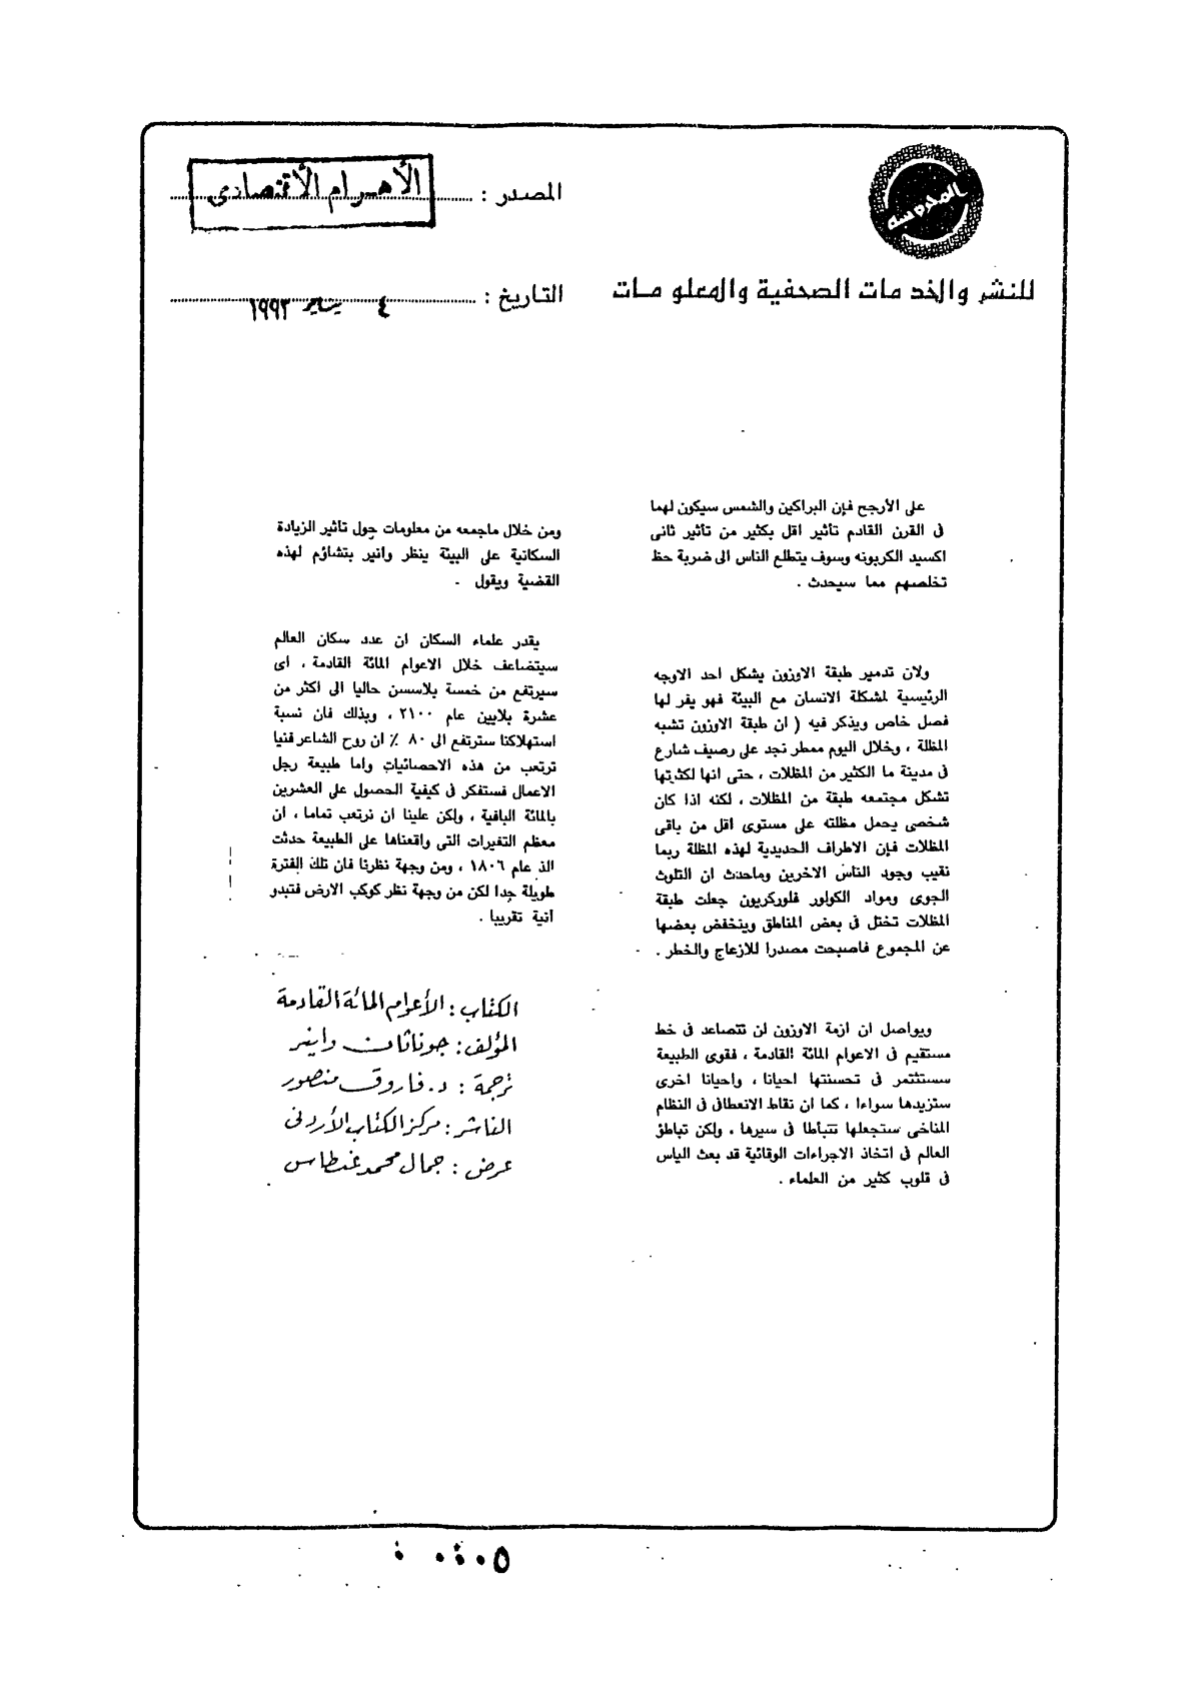 المدرسة
للنشر والخدمات الصحفية والمعلومات
المصدر : الأهرام الأقتصادى
التاريخ : ٤ يناير ١٩٩٣
على الأرجح فإن البراكين والشمس سيكون لهما
فى القرن القادم تأثير اقل بكثير من تأثير ثانى
اكسيد الكربونه وسوف يتطلع الناس الى ضربة حظ
تخلصهم مما سيحدث .
ولان تدمير طبقة الاوزون يشكل احد الاوجه
الرئيسية لمشكلة الانسان مع البيئة فهو يفر لها
فصل خاص ويذكر فيه ( ان طبقة الاوزون تشبه
المظلة ، وخلال اليوم ممطر نجد على رصيف شارع
فى مدينة ما الكثير من المظلات ، حتى انها لكثرتها
تشكل مجتمعه طبقة من المظلات ، لكنه اذا كان
شخصى يحمل مظلته على مستوى اقل من باقى
المظلات فإن الاطراف الحديدية لهذه المظلة ربما
نقيب وجود الناس الاخرين وماحدث ان التلوث
الجوى ومواد الكولور فلوركربون جعلت طبقة
المظلات تختل فى بعض المناطق وينخفض بعضها
عن المجموع فاصبحت مصدرا للازعاج والخطر .
ويواصل ان ازمة الاوزون لن تتصاعد فى خط
مستقيم فى الاعوام المائة القادمة ، فقوى الطبيعة
ستستثمر فى تحسنتها احيانا ، واحيانا اخرى
ستزيدها سواءا ، كما ان نقاط الانعطاف فى النظام
المناخى ستجعلها تتبأطا فى سيرها ، ولكن تباطؤ
العالم فى اتخاذ الاجراءات الوقائية قد بعث الياس
فى قلوب كثير من العلماء .
ومن خلال ماجمعه من معلومات حول تاثير الزيادة
السكانية على البيئة ينظر وانير بتشاؤم لهذه
القضية ويقول .
يقدر علماء السكان ان عدد سكان العالم
سيتضاعف خلال الاعوام المائة القادمة ، اى
سيرتفع من خمسة بلاسسن حاليا الى اكثر من
عشرة بلايين عام ٢١٠٠ ، وبذلك فان نسبة
استهلاكنا سترتفع الى ٨٠ ٪ ان روح الشاعر فنيا
ترتعب من هذه الاحصائيات واما طبيعة رجل
الاعمال فستفكر فى كيفية الحصول على العشرين
بالمائة الباقية ، ولكن علينا ان نرتعب تماما ، ان
معظم التغيرات التى واقعناها على الطبيعة حدثت
الذ عام ١٨٠٦ ، ومن وجهة نظرنا فان تلك الفترة
طويلة جدا لكن من وجهة نظر كوكب الارض فتبدو
انية تقريبا .
الكتاب : الأعوام المائة القادمة
المؤلف : جوناثان واينر
ترجمة : د. فاروق منصور
الناشر : مركز الكتاب الأردنى
عرض : جمال محمد غيطاس